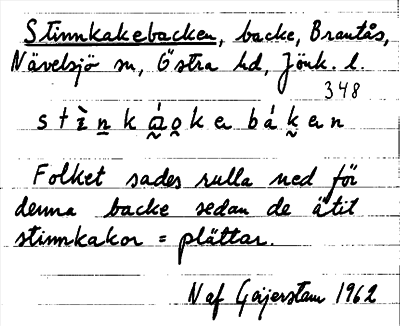 Stinnkakebacken, backe, Brantås,
Nävelsjö sn, Östra hd, Jönk. l.
348
stìnkáokebákan
Folket sades rulla ned för
denna backe sedan de ätit
stinnkakor = plättar.
N af Geijerstam 1962